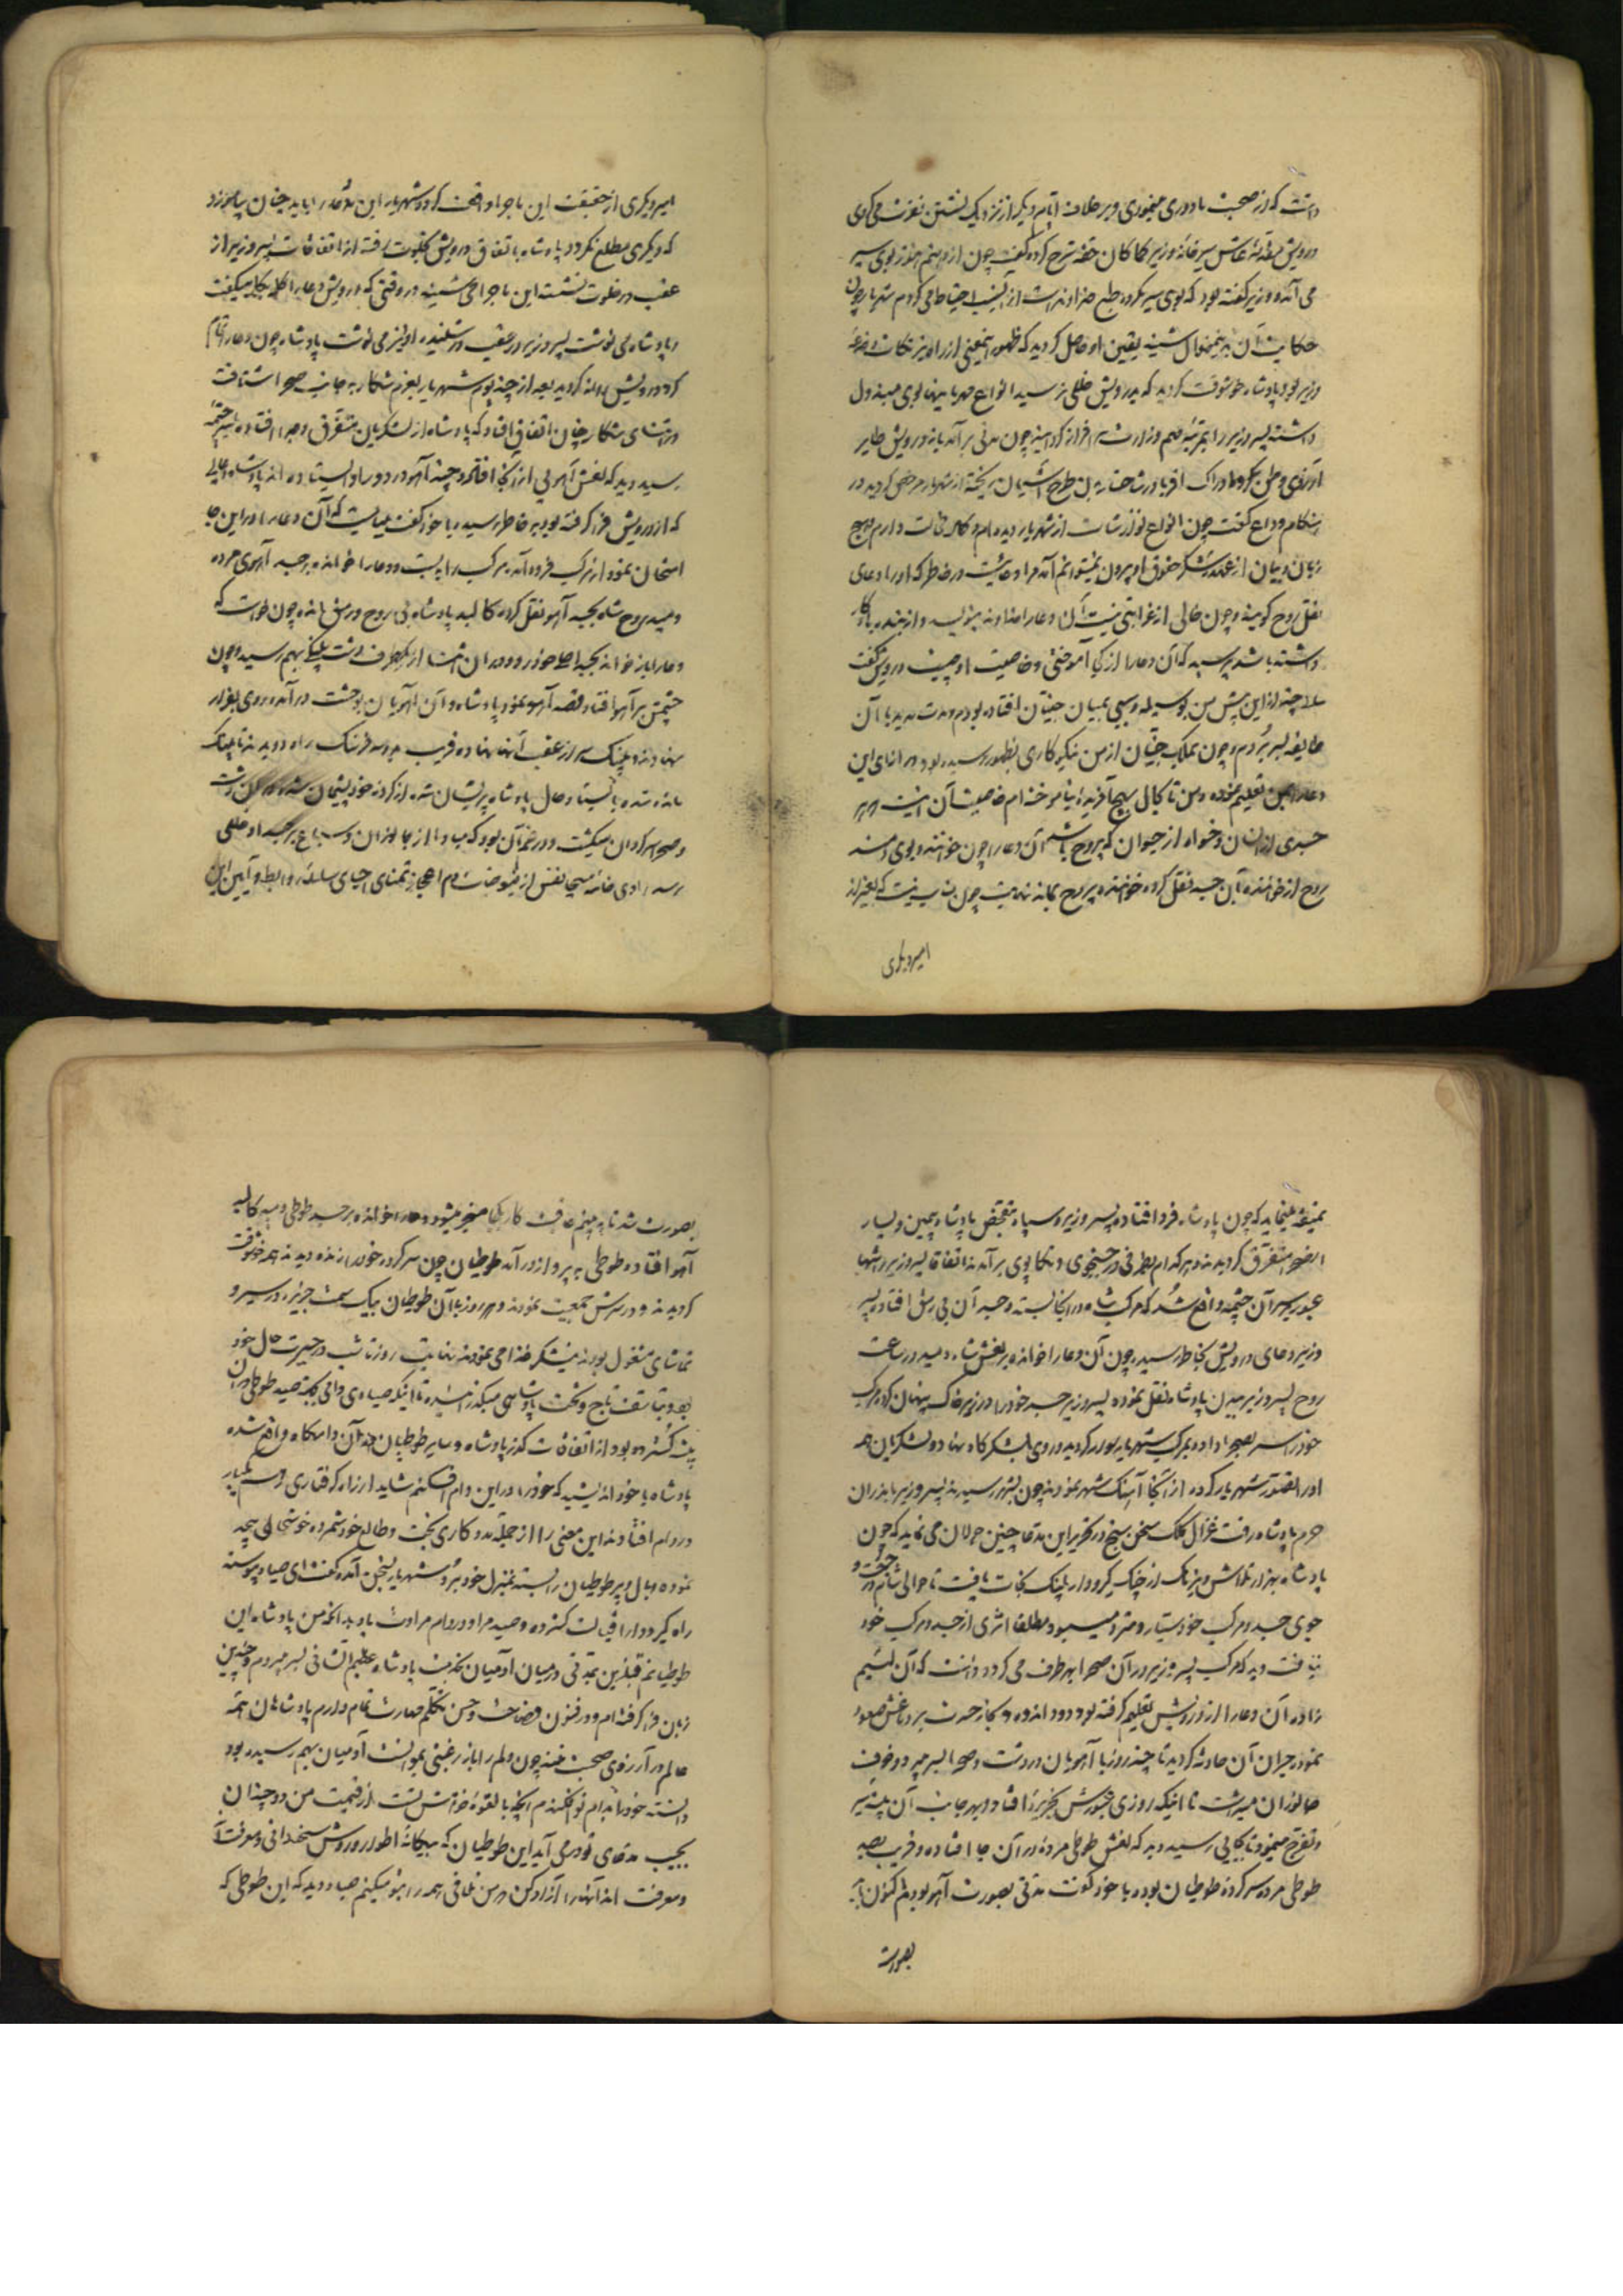 داشت که از صحبت ما دوری میخوری و بر خلاف ایام دیگر از نزدیک نشستن نفرت می کردی
درویش مقدمه عاش سیر خانه وزیر کماکان حقه شرح کرده گفت چون از دهنم هنوز بوی سیر
می آمد و وزیر گفته بود که بوی سیر مکروه طبع خداوند است از آن احتیاط می کردم شهریار چون
حکایت آن بدین منوال شنید یقین او حاصل گردید که ظهور اینمعنی از راه
وزیر بود پادشاه خوشوقت گردید که بدرویش خللی نرسید انواع مهربانیها بوی مبذول
داشته پسر وزیر را بمرتبه مهم وزارت سرافراز گردانید چون مدتی برآمد باز درویش طایر
آرزوی وطن کرده و ادراک اقربا در شاخسار دل طرح آشیان ریخته از شهریار مرخص گردید در
هنگام وداع گفت چون انواع نوازشات از شهریار دیده ام و کمال خجالت دارم و هیچ
زبان و بیان از عهده شکر حقوق او بیرون نمیتوانم آمد مرا دعائیست در خاطر که او را دعای
نقل روح گویند و چون خالی از غرابتی نیست آن دعا را خداوند بنویسد و از بنده یادگار
داشته باشد پرسید که آن دعا را از که آموختی و خاصیت او چیست درویش گفت
سال چند از این پیش من بوسیله و سببی بمیان جنیان افتاده بودم و مدت مدید با آن
طایفه بسر بردم و چون بملک جنیان از من نیکوکاری بظهور رسیده بود در ازای این
دعا را بمن تعلیم نموده و من تا کمال بهیچ آفریده نیاموخته ام خاصیت آن اینست که هر
جسدی از انسان و خواه از حیوان که بیروح باشد آن دعا را چون خوانند و بوی دمند
روح از خواننده بآن جسد نقل کرده خواننده بیروح بماند نهایت چون مناسب نیست که بغیر از
امیر دیگری
امیر دیگری از حقیقت این ماجرا واقف گردد شهریار این دعا را باید چنان بیاموزد
که دیگری مطلع نگردد پادشاه باتفاق درویش بخلوت رفته از اتفاقات پسر وزیر از
عقب در خلوت نشسته این ماجرا می شنید در وقتی که درویش دعا را کلمه بکلمه میگفت
و پادشاه می نوشت پسر وزیر در عقب در شنیده او نیز می نوشت پادشاه چون دعا را تمام
کرد درویش روانه گردید بعد از چند یوم شهریار بعزم شکار بجانب صحرا شتافت
در اثنای شکار چنان اتفاق افتاد که پادشاه از لشکریان متفرق و جدا افتاده بسر چشمه
رسید دید که نعش آهویی از آنجا افتاده و چند آهو در دور او ایستاده اند پادشاه را دعایی
که از درویش فرا گرفته بود بخاطر رسیده با خود گفت میباید که آن دعا را در این جا
امتحان نمود از مرکب فرود آمد مرکب را بست و دعا را خوانده بر جسد آهوی مرده
دمید روح شاه بجسد آهو نقل کرده کالبد پادشاه بی روح و رمق مانده چون خواست که
دعا را باز خوانده بجسد اصلی خود رود در آن اثنا از یکطرف دشت پلنگی بهم رسید و چون
چشمش بر آهو افتاد قصد آهو نمود پادشاه و آن آهویان بوحشت درآمده روی بفرار
نهادند و پلنگ سر از عقب آنها نهاده قریب بدو سه فرسنگ راه دویدند تا پلنگ
مانده شده بایستاد حال پادشاه پریشان شد از کرده خود پشیمان شده در آن دشت
و صحرا سرگردان میگشت و در غم آن بود که مبادا از جانوران و سباع بر جسد او خللی
رسد راوی خامه مسیحا نفس از فیوضات دم اعجاز تمنای احیای سلسله روابط و آیین این
نمیقه مینماید که چون پادشاه فرد افتاده پسر وزیر و سپاه بتفحص پادشاه بیمین و یسار
آنصحرا متفرق گردیدند و هر کدام بطرفی در جستجوی و تکاپوی برآمدند اتفاقا پسر وزیر را تنها
عبور بر سر آن چشمه واقع شد که مرکب شاه در آنجا بسته و جسد آن بی رمق افتاده پسر
وزیر دعای درویش بخاطر رسید چون آن دعا را خوانده بر نعش شاه دمید در ساعت
روح پسر وزیر ببدن پادشاه نقل نموده پسر وزیر جسد خود را در زیر خاک پنهان کرد و مرکب
خود را سر بصحرا داده بمرکب شهریار سوار گردید و روی بلشکرگاه نهاد و لشکریان همه
او را تصور شهریار کرده از آنجا آهنگ شهر نمودند چون بشهر رسیدند پسر وزیر با اندرون
حرم پادشاه رفت غزال کلک سخن سنج در تحریر این مدعا چنین جولان می نماید که چون
پادشاه بهزار تلاش و نیرنگ از چنگ گیرودار پلنگ نجات یافت تا حوالی شام در جست و
جوی جسد و مرکب خود بسیار و متردد میبود مطلقا اثری از جسد و مرکب خود
نیافت دید که مرکب پسر وزیر در آن صحرا بهر طرف می گردد دانست که آن لئیم
زاده آن دعا را از درویش تعلیم گرفته بود دود اندوه و بخار حسرت بر دماغش صعود
نموده حیران آن حادثه گردید تا چند روز با آهویان در دشت و صحرا بسر میبرد و خوف
جانوران میداشت تا اینکه روزی عبورش بجزیره افتاد و بهر جانب آن بسیر
و تفرج مینمود تا بجایی رسید دید که نعش طوطی مرده در آن جا افتاده و قریب بصد
طوطی مرده سرکرده طوطیان بوده با خود گفت مدتی بصورت آهو بودم اکنون به
بصورت
بصورت شدن تا ببینم عاقبت کار بکجا منجر میشود دعا را خوانده بر جسد طوطی دمید کالبد
آهو افتاده طوطی به پرواز درآمد طوطیان چون سرکرده خود را زنده دیدند همه خوشوقت
گردیدند و در سرش جمعیت نمودند و هر روز با آن طوطیان بیک سمت جزیره در سیر و
تماشای مشغول بودند شکر خدا می نمودند نهایت روز تا شب در حیرت حال خود
بود و بتأسف تاج و تخت پادشاهی میگذرانیده تا اینکه صیادی دامی بجهت صید طوطی در آن
بیشه گسترده بود از اتفاقات گذر پادشاه و سایر طوطیان بدان دامگاه واقع شده
پادشاه با خود اندیشید که خود را در این دام افکنم شاید از راه گرفتاری
در دام افتادند این معنی را از جمله مددکاری بخت و طالع خود شمرده خوشحالی بیحد
نموده بال و پر طوطیان را بسته بمنزل خود برد شهریار بسخن آمده گفت ای صیاد پیوسته
راه گیر و دار اقبالت گشوده و صید مراد در دام مرادت باد بدانکه من پادشاه این
طوطیانم قبل از این بمدتی در میان آدمیان بخدمت پادشاه عظیم الشانی بسر میبردم و چندین
زبان فرا گرفته ام و در فنون فصاحت و حسن تکلم مهارت تمام دارم پادشاهان همه
عالم در آرزوی صحبت منند چون دلم را باز رغبتی بموانست آدمیان بهم رسیده بود
دانسته خود را بدام تو افکندم آنچه بالقوه خواهش تست از قیمت من دو چندان
بجیب مدعای تو درمی آید این طوطیان که بیگانه اطوار و روش سخندانی و معرفت
و معرفت اند آنها را آزاد کن و من تلافی همه را بتو میکنم صیاد دید که این طوطی که